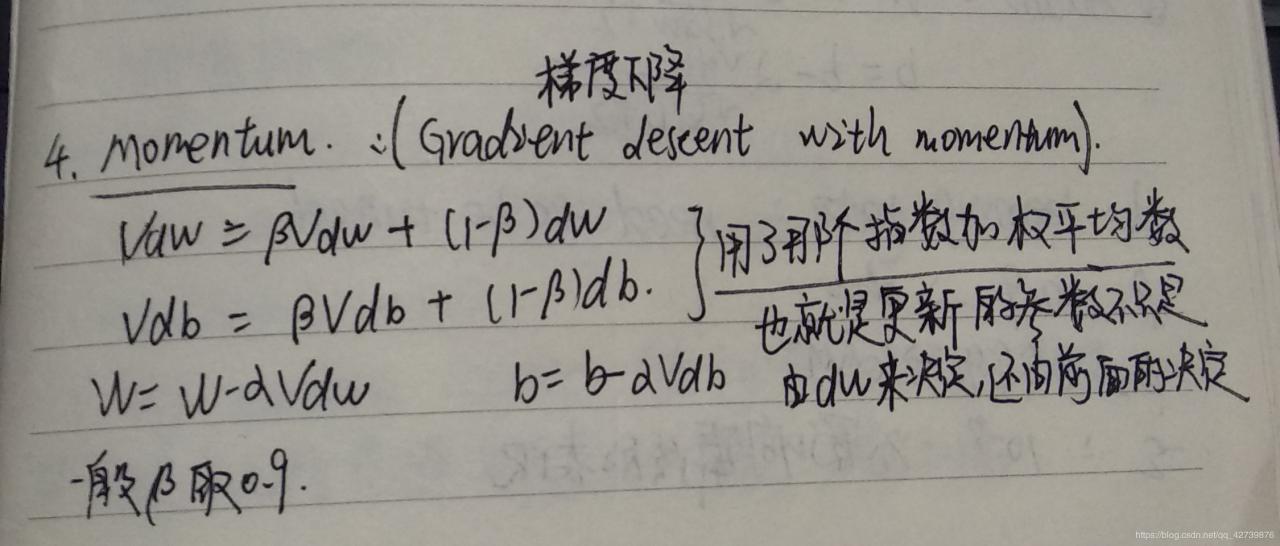 梯度下降
4. Momentum. :(Gradient descent with momentum).
Vdw = βVdw + (1-β)dw
Vdb = βVdb + (1-β)db.
} 用了那个指数加权平均数
也就是更新的参数不只是
由dw来决定,还由前面的决定
W = W-αVdw b = b-αVdb
一般β取0.9.
https://blog.csdn.net/qq_42739876